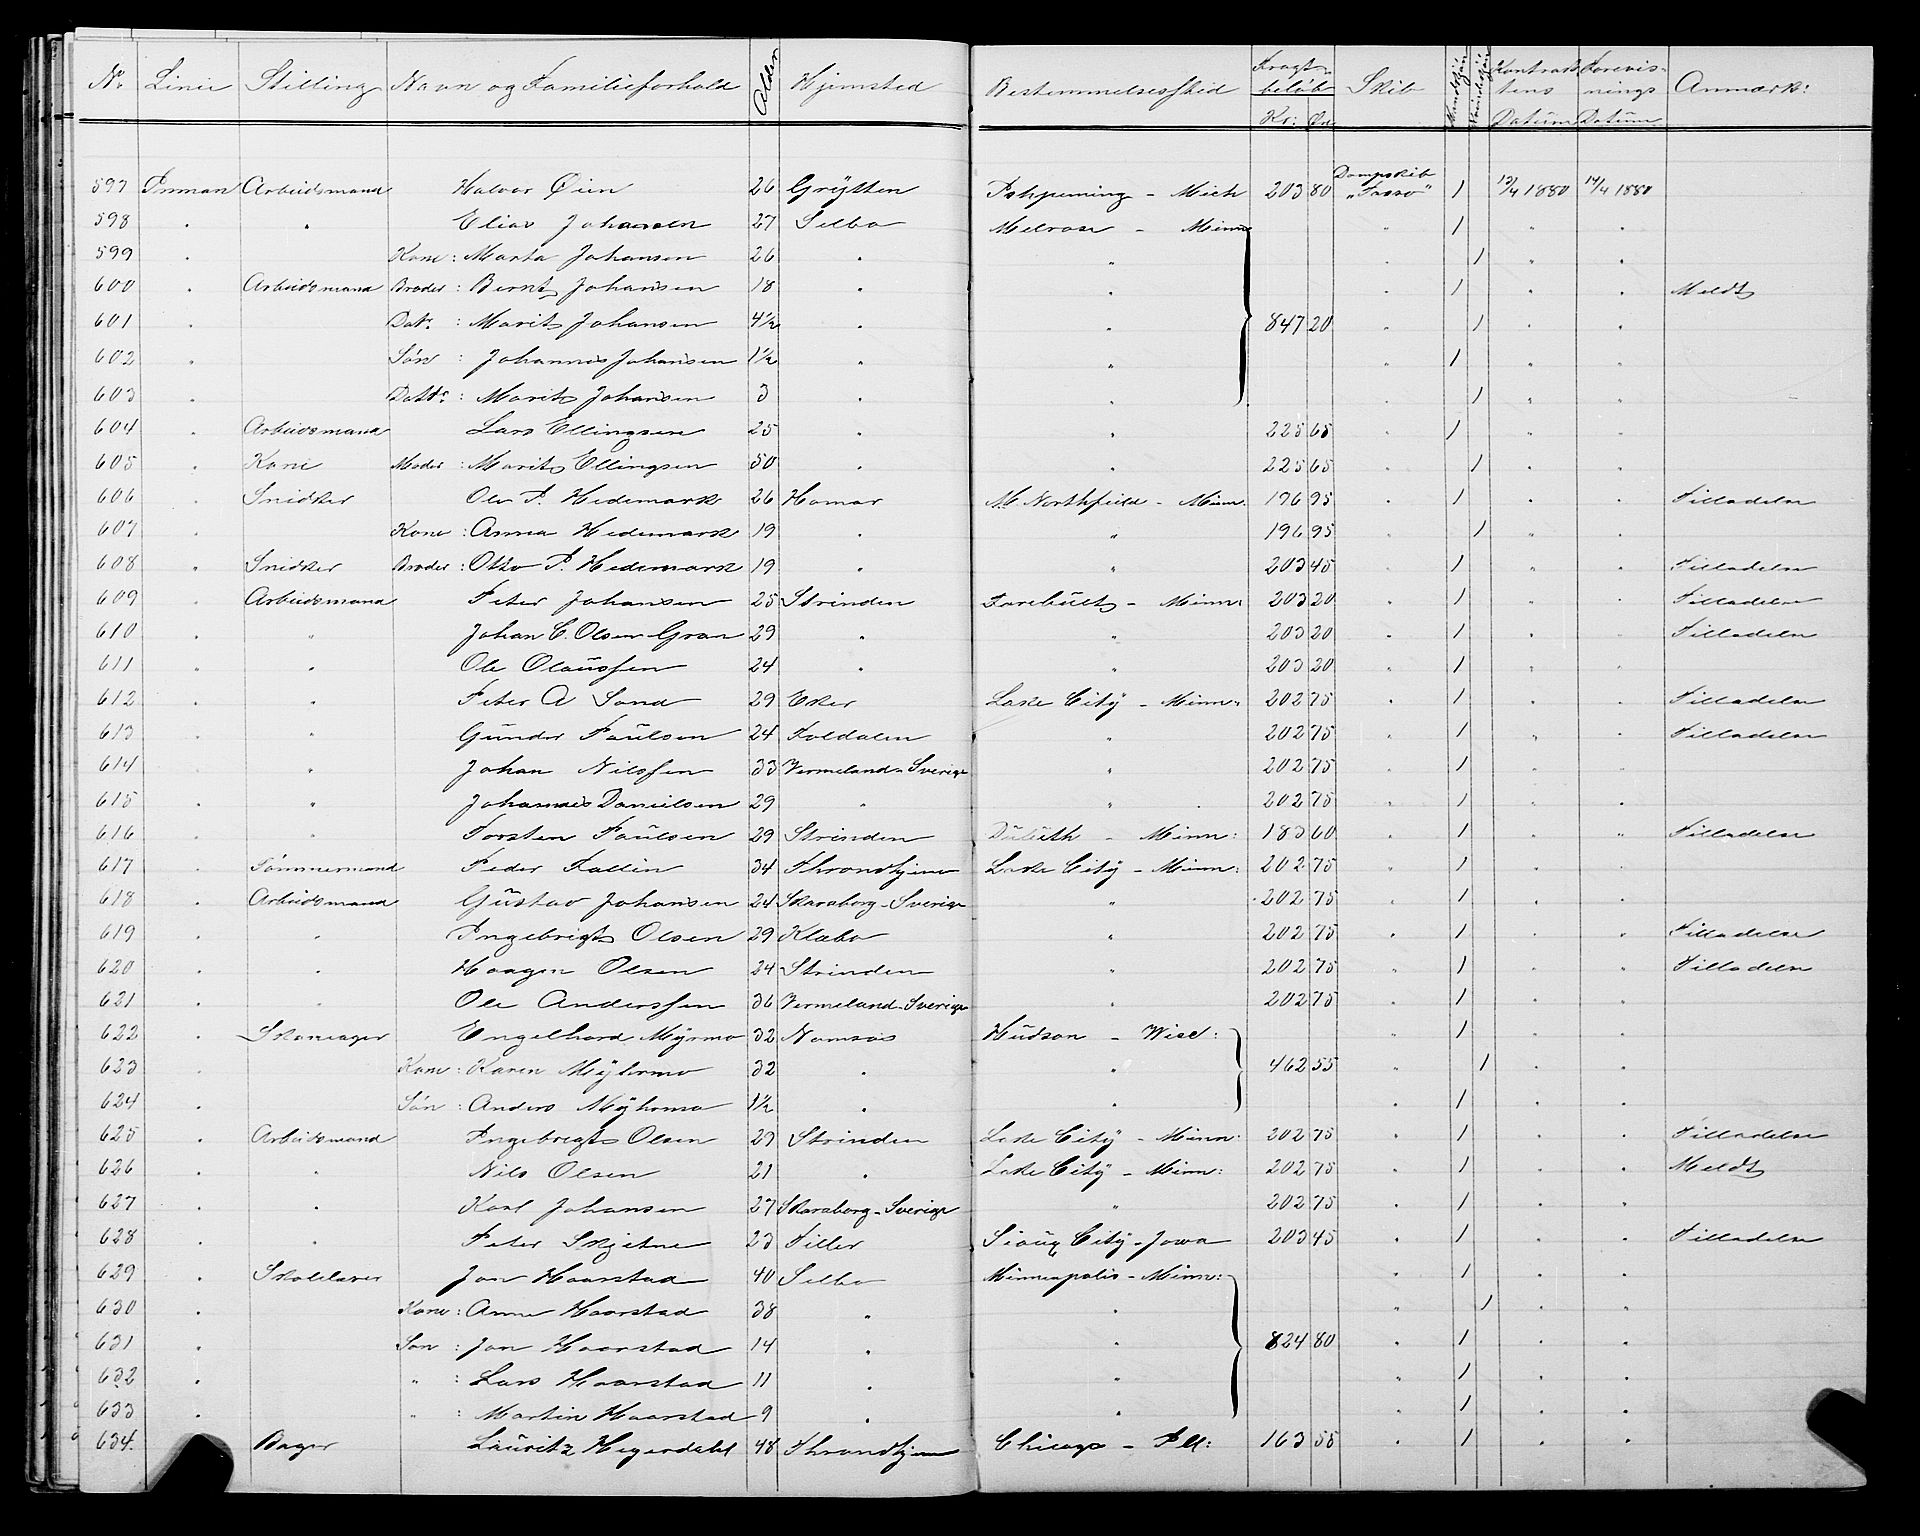 No. Linie Stilling Navn og Familieforhold Alder Hjemsted Bestemmelsessted Fragtbeløb Kr: Øre Skib Mandskjøn Kvindeskjøn Kontraktens Datum Forevisnings Datum Anmærk:
597 Inman Arbeidsmand Halvor Øien 26 Grÿtten Ishpeming - Mich 203 80 Dampskib "Tasso" 1 13/4 1880 14/4 1880
598 " " Elias Johansen 27 Selbo Melrose - Minn " 1 " "
599 " Kone: Marta Johansen 26 " " " 1 " "
600 " Arbeidsmand Broder: Bernt Johansen 18 " " " 1 " " Meldt
601 " Datr: Marit Johansen 4½ " " 847 20 " 1 " "
602 " Søn: Johannes Johansen 1½ " " " 1 " "
603 " Dattr: Marit Johansen 3 " " " 1 " "
604 " Arbeidsmand Lars Ellingsen 25 " " 225 65 " 1 " "
605 " Kone Moder: Marit Ellingsen 50 " " 225 65 " 1 " "
606 " Snidker Ole P. Hedemark 26 Hamar Northfield - Minn: 196 95 " 1 " " Tilladelse
607 " Kone: Anna Hedemark 19 " " 196 95 " 1 " "
608 " Snidker Broder: Otto P. Hedemark 19 " " 203 45 " 1 " " Tilladelse
609 " Arbeidsmand Peter Johansen 25 Strinden Farebult - Minn: 203 20 " 1 " " Tilladelse
610 " " Johan C. Olsen Gran 29 " " 203 20 " 1 " " Tilladelse
611 " " Ole Olaussen 24 " " 203 20 " 1 " "
612 " " Peter A Sand 29 Eker Lake City - Minn: 202 75 " 1 " " Tilladelse
613 " " Gunder Paulsen 24 Foldalen " 202 75 " 1 " " Tilladelse
614 " " Johan Nilssen 33 Vermeland-Sverige " 202 75 " 1 " "
615 " " Johannes Danielsen 29 " " 202 75 " 1 " "
616 " " Torsten Paulsen 29 Strinden Duluth - Minn: 183 60 " 1 " " Tilladelse
617 " Tømmermand Peder Fallin 34 Throndhjem Lake City - Minn: 202 75 " 1 " "
618 " Arbeidsmand Gustav Johansen 24 Skaraborg-Sverige " 202 75 " 1 " "
619 " " Ingebrigt Olsen 29 Klæbo " 202 75 " 1 " " Tilladelse
620 " " Haagen Olsen 24 Strinden " 202 75 " 1 " " Tilladelse
621 " " Ole Anderssen 36 Vermeland-Sverige " 202 75 " 1 " "
622 " Skomager Engelhard Mÿrmo 32 Namsos Hudson - Wisc: " 1 " "
623 " Kone: Karen Mÿhrmo 32 " " 462 55 " 1 " "
624 " Søn: Anders Mÿhrmo 1½ " " " 1 " "
625 " Arbeidsmand Ingebrigt Olsen 29 Strinden Lake City - Minn: 202 75 " 1 " " Tilladelse
626 " " Nils Olsen 21 " Lake City - Minn: 202 75 " 1 " " Meldt
627 " " Karl Johansen 27 Skaraborg-Sverige " 202 75 " 1 " "
628 " " Peter Skjetne 23 Tiller Sioux City - Jowa 203 45 " 1 " " Tilladelse
629 " Skolelærer Jon Haarstad 40 Selbo Minneapolis - Minn: " 1 " "
630 " Kone: Anne Haarstad 38 " " " 1 " "
631 " Søn: Jon Haarstad 14 " " 824 80 " 1 " "
632 " " : Lars Haarstad 11 " " " 1 " "
633 " " : Martin Haarstad 9 " " " 1 " "
634. " Bager Lauritz Hegerdahl 48 Throndhjem Chicago - Ill: 163 55 " 1 " "